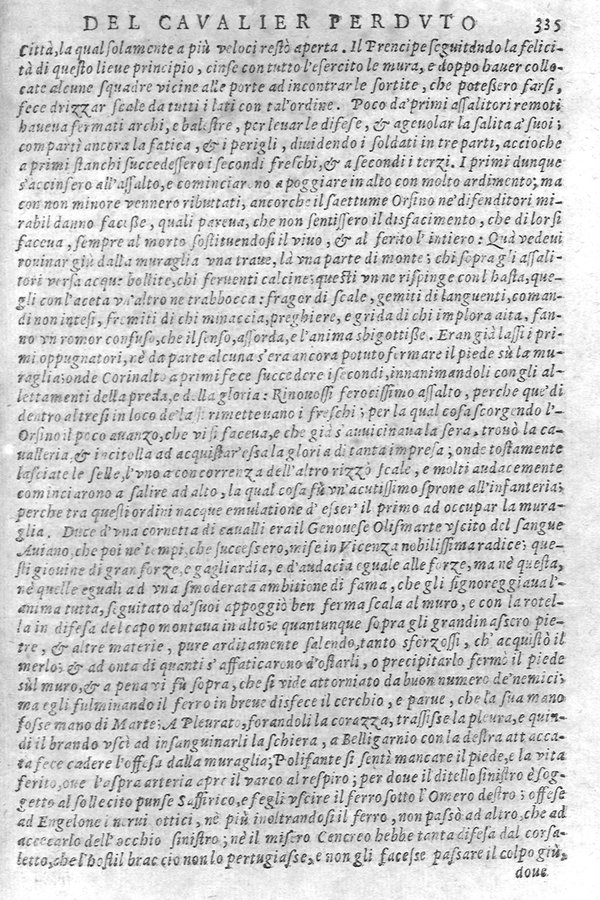 DEL CAVALIER PERDVTO 335
Città, la qual solamente a più veloci restò aperta. Il Prencipe seguitando la felici-
tà di questo lieue principio, cinse con tutto l'esercito le mura, e doppo hauer collo-
cate alcune squadre vicine alle porte ad incontrar le sortite, che poteßero farsi,
fece drizzar scale da tutti i lati con tal'ordine. Poco da' primi assalitori remoti
haueua fermati archi, e balestre, per leuar le difese, & ageuolar la salita a' suoi;
compartì ancora la fatica, & i perigli, diuidendo i soldati in tre parti, accioche
a primi stanchi succedessero i secondi freschi, & a secondi i terzi. I primi dunque
s'accinsero all'assalto, e cominciarono a poggiare in alto con molto ardimento; ma
con non minore vennero ributtati, ancorche il saettume Orsino ne' difenditori mi-
rabil danno faceße, quali pareua, che non sentissero il disfacimento, che di lor si
faceua, sempre al morto sostituendosi il viuo, & al ferito l'intiero: Quà vedeui
rouinar giù dalla muraglia vna traue, là vna parte di monte; chi sopra gli assali-
tori versa acque bollite, chi feruenti calcine; questi vn ne rispinge con l'hasta, que-
gli con l'aceta vn'altro ne trabocca: fragor di scale, gemiti di languenti, coman-
di non intesi, fremiti di chi minaccia, preghiere, e grida di chi implora aita, fan-
no vn romor confuso, che il senso, assorda, e l'anima sbigottiße. Eran già lassi i pri-
mi oppugnatori, nè da parte alcuna s'era ancora potuto fermare il piede sù la mu-
raglia: onde Corinalto a primi fece succedere i secondi, innanimandoli con gli al-
lettamenti della preda, e della gloria: Rinouossi ferocissimo assalto, perche que' di
dentro altresi in loco de lassi rimetteuano i freschi; per la qual cosa scorgendo l'-
Orsino il poco auanzo, che vi si faceua, e che già s'auuicinaua la sera, trouò la ca-
ualleria, & incitolla ad acquistar'essa la gloria di tanta impresa; onde tostamente
lasciate le selle, l'vno a concorrenza dell'altro rizzò scale, e molti audacemente
cominciarono a salire ad alto, la qual cosa fù vn'acutissimo sprone all'infanteria;
perche tra questi ordini nacque emulatione d'esser'il primo ad occupar la mura-
glia. Duce d'vna cornetta di caualli era il Genouese Olismarte vscito del sangue
Auiano, che poi ne' tempi, che successero, mise in Vicenza nobilissima radice; que-
sti giouine di gran forze, e gagliardia, e d'audacia eguale alle forze, ma nè questa,
nè quelle eguali ad vna smoderata ambitione di fama, che gli signoreggiaua l'-
anima tutta, seguitato da' suoi appoggiò ben ferma scala al muro, e con la rotel-
la in difesa del capo montaua in alto; e quantunque sopra gli grandinassero pie-
tre, & altre materie, pure arditamente salendo, tanto sforzossi, ch'acquistò il
merlo; & ad onta di quanti s'affaticarono d'ostarli, o precipitarlo fermò il piede
sùl muro, & a pena vi fù sopra, che si vide attorniato da buon numero de' nemici;
ma egli fulminando il ferro in breue disfece il cerchio, e parue, che la sua mano
fosse mano di Marte; A Pleurato, forandoli la corazza, trafisse la pleura, e quin-
di il brando vscì ad insanguinarli la schiera, a Belligarnio con la destra attacca-
ta fece cadere l'offesa dalla muraglia; Polifante si sentì mancare il piede, e la vita
ferito, oue l'aspra arteria apre il varco al respiro; per doue il ditello sinistro è sog-
getto al sollecito punse Saffirico, e fegli vscire il ferro sotto l'Omero destro; offese
ad Engelone i nerui ottici, nè più inoltrandosi il ferro, non passò ad altro, che ad
accecarlo dell'occhio sinistro; nè il misero Cencreo hebbe tanta difesa dal corsa-
letto, che l'hostil braccio non lo pertugiasse, e non gli facesse passare il colpo giù,
doue